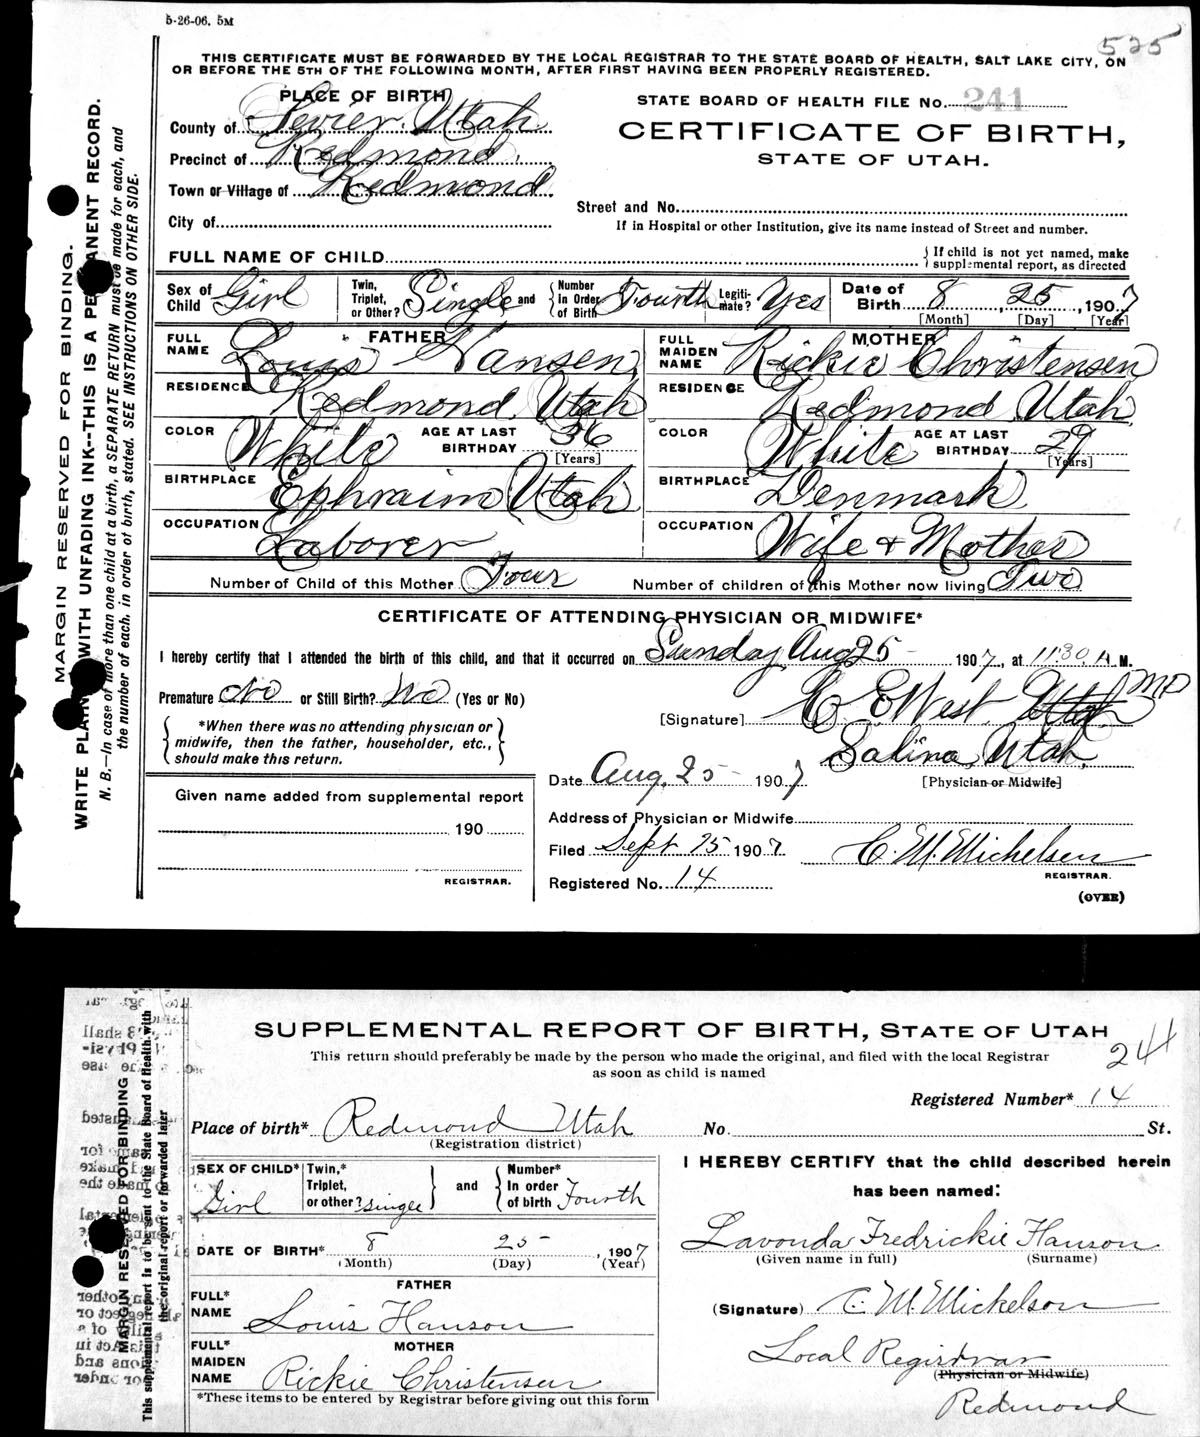 5-26-06. 5M
525
THIS CERTIFICATE MUST BE FORWARDED BY THE LOCAL REGISTRAR TO THE STATE BOARD OF HEALTH, SALT LAKE CITY, ON
OR BEFORE THE 5TH OF THE FOLLOWING MONTH, AFTER FIRST HAVING BEEN PROPERLY REGISTERED.
PLACE OF BIRTH
County of Sevier. Utah
Precinct of Redmond.
Town or Village of Redmond
City of
STATE BOARD OF HEALTH FILE No. 241
CERTIFICATE OF BIRTH,
STATE OF UTAH.
Street and No.
If in Hospital or other Institution, give its name instead of Street and number.
FULL NAME OF CHILD { If child is not yet named, make supplemental report, as directed
Sex of Child Girl Twin, Triplet, or Other? Single and Number in Order of Birth Fourth Legiti-mate? Yes Date of Birth 8 25, 1907
[Month] [Day] [Year]
FATHER
FULL NAME Louis Hansen
RESIDENCE Redmond, Utah
COLOR White AGE AT LAST BIRTHDAY 36 [Years]
BIRTHPLACE Ephraim Utah
OCCUPATION Laborer
MOTHER
FULL MAIDEN NAME Rickie Christensen
RESIDENCE Redmond Utah
COLOR White AGE AT LAST BIRTHDAY 29 [Years]
BIRTHPLACE Denmark
OCCUPATION Wife & Mother
Number of Child of this Mother Four Number of children of this Mother now living Two
CERTIFICATE OF ATTENDING PHYSICIAN OR MIDWIFE*
I hereby certify that I attended the birth of this child, and that it occurred on Sunday Aug 25 - 1907, at 11:30 A M.
Premature No or Still Birth? No (Yes or No)
*When there was no attending physician or
midwife, then the father, householder, etc.,
should make this return.
[Signature] C. E West Utah MD
Salina, Utah.
[Physician or Midwife]
Date Aug. 25 - 1907
Given name added from supplemental report
190
REGISTRAR.
Address of Physician or Midwife
Filed Sept 25 1907. C. M. Mickelsen
REGISTRAR.
Registered No. 14
(OVER)
MARGIN RESERVED FOR BINDING.
WRITE PLAINLY WITH UNFADING INK--THIS IS A PERMANENT RECORD.
N. B.—In case of more than one child at a birth, a SEPARATE RETURN must be made for each, and
the number of each, in order of birth, stated. SEE INSTRUCTIONS ON OTHER SIDE.
SUPPLEMENTAL REPORT OF BIRTH, STATE OF UTAH
This return should preferably be made by the person who made the original, and filed with the local Registrar
as soon as child is named
241
Registered Number* 14
Place of birth* Redmond Utah No. St.
(Registration district)
SEX OF CHILD* Girl Twin,* Triplet, or other? Single and Number* In order of birth Fourth
DATE OF BIRTH* 8 25, 1907
(Month) (Day) (Year)
FATHER
FULL* NAME Louis Hanson
MOTHER
FULL* MAIDEN NAME Rickie Christensen
*These items to be entered by Registrar before giving out this form
I HEREBY CERTIFY that the child described herein
has been named:
Lavonda Fredrickie Hanson
(Given name in full) (Surname)
(Signature) C. M. Mickelson
Local Registrar
(Physician or Midwife)
Redmond
MARGIN RESERVED FOR BINDING
This supplemental report is to be sent to the State Board of Health with
the original report or forwarded later